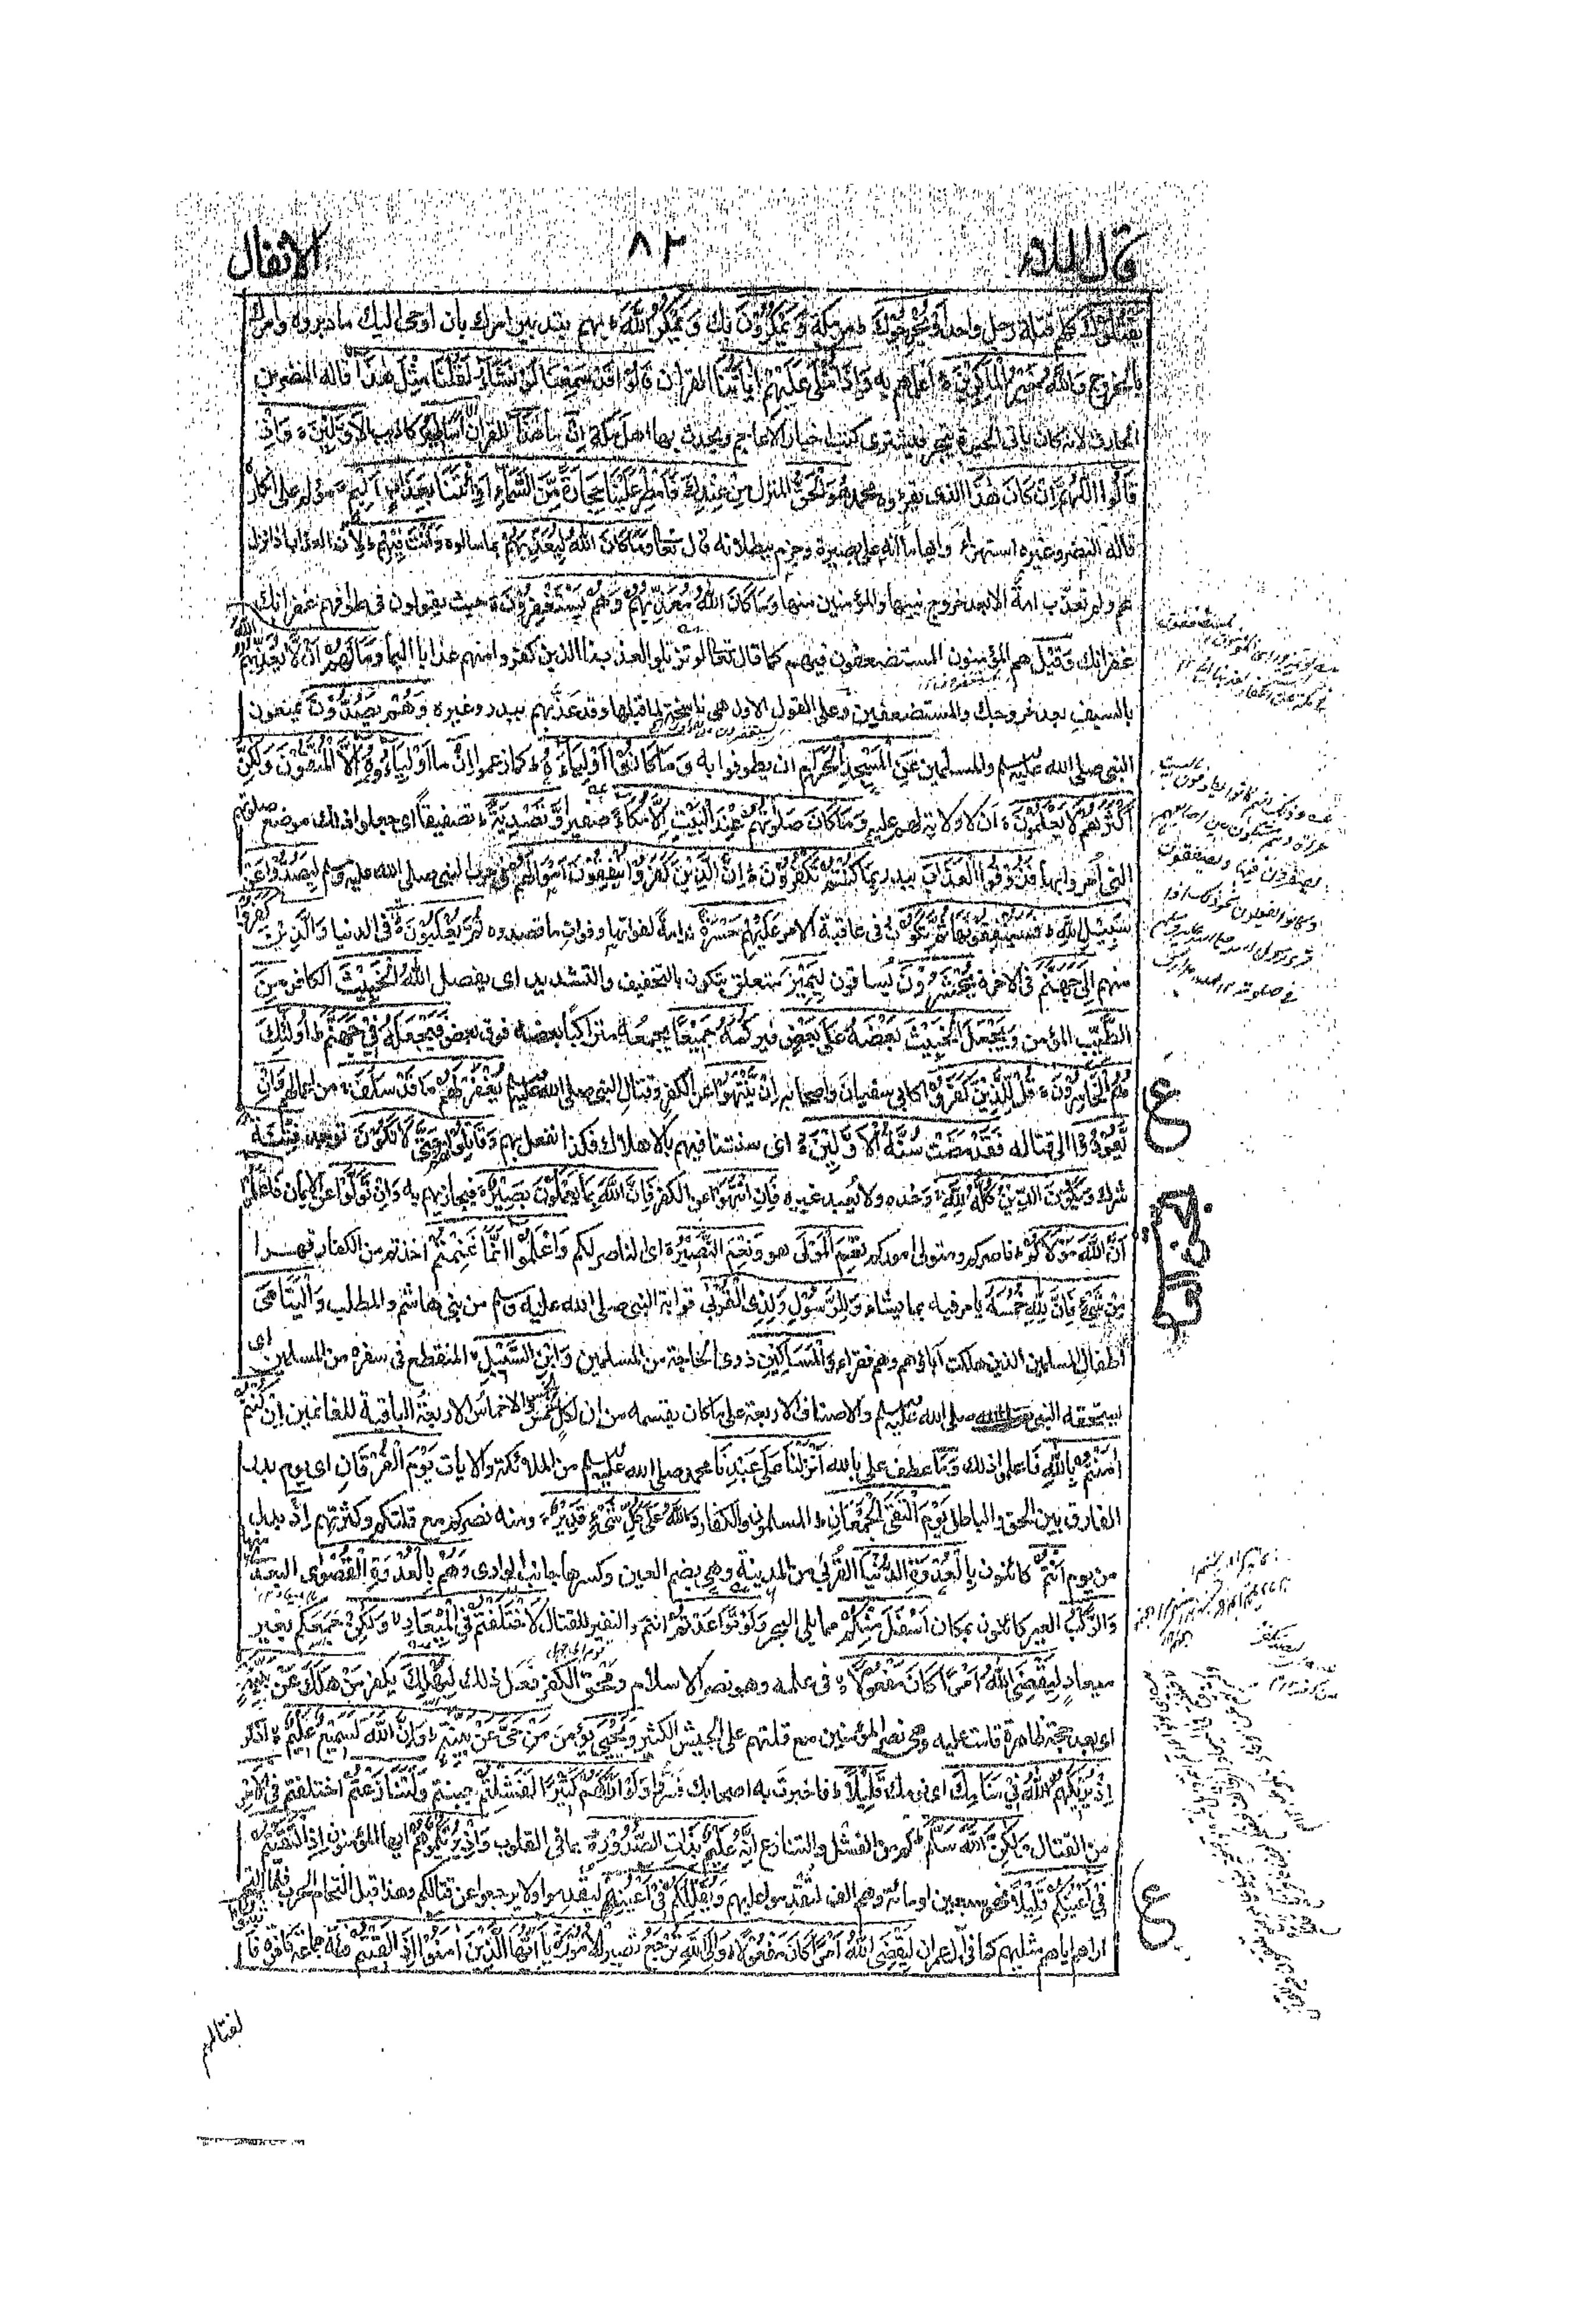 قال الملا
٨٢
الانفال
يَقْتُلُوْكَ كلهم قتلة رجل واحد اَوْ يُخْرِجُوْكَ ؕ من مكة وَيَمْكُرُوْنَ بك وَيَمْكُرُ اللّٰهُ ؕ بهم بتدبير امرك بان اوحى اليك ما دبروه وامرك
بالخروج وَاللّٰهُ خَيْرُ الْمَاكِرِيْنَ ۝ اعلمهم به وَاِذَا تُتْلٰى عَلَيْهِمْ اٰيَاتُنَا القراٰن قَالُوْا قَدْ سَمِعْنَا لَوْ نَشَآءُ لَقُلْنَا مِثْلَ هٰذَا ۙ قاله النضر بن
الحارث لانه كان ياتى الحيرة يتجر فيشترى كتب اخبار الاعاجم ويحدث بها اهل مكة اِنْ ما هٰذَا القراٰن اِلَّا اَسَاطِيْرُ اكاذيب الْاَوَّلِيْنَ ۝ وَاِذْ
قَالُوا اللّٰهُمَّ اِنْ كَانَ هٰذَا الذى يقرؤه محمد هُوَ الْحَقَّ المنزل مِنْ عِنْدِكَ فَاَمْطِرْ عَلَيْنَا حِجَارَةً مِّنَ السَّمَآءِ اَوِ ائْتِنَا بِعَذَابٍ اَلِيْمٍ ۝ مؤلم على انكاره
قاله النضر وغيره استهزاء وايهاما انه على بصيرة وجزم ببطلانه قال تعالى وَمَا كَانَ اللّٰهُ لِيُعَذِّبَهُمْ بما سالوه وَاَنْتَ فِيْهِمْ ؕ لان العذاب اذا نزل
عم ولم تعذب امة الا بعد خروج نبيها والمؤمنين منها وَمَا كَانَ اللّٰهُ مُعَذِّبَهُمْ وَهُمْ يَسْتَغْفِرُوْنَ ۝ حيث يقولون فى طوافهم غفرانك
غفرانك وَقِيْلَ هم المؤمنون المستضعفون فيهم كما قال تعالى لو تزيلوا لعذبنا الذين كفروا منهم عذابا اليما وَمَا لَهُمْ اَنْ لَّا يُعَذِّبَهُمُ اللّٰهُ
بالسيف بعد خروجك والمستضعفين وعلى القول الاول هى ناسخة لما قبلها وقد عذبهم ببدر وغيره وَهُمْ يَصُدُّوْنَ يمنعون
النبى صلى الله عليه وسلم والمسلمين عَنِ الْمَسْجِدِ الْحَرَامِ ان يطوفوا به وَمَا كَانُوْا اَوْلِيَآءَهٗ ؕ كما زعموا اِنْ ما اَوْلِيَآؤُهٗ اِلَّا الْمُتَّقُوْنَ وَلٰكِنَّ
اَكْثَرَهُمْ لَا يَعْلَمُوْنَ ۝ ان لا ولاية لهم عليه وَمَا كَانَ صَلَاتُهُمْ عِنْدَ الْبَيْتِ اِلَّا مُكَآءً صفيرا وَّتَصْدِيَةً ؕ تصفيقا اى جعلوا ذلك موضع صلوتهم
التى امروا بها فَذُوْقُوا الْعَذَابَ ببدر بِمَا كُنْتُمْ تَكْفُرُوْنَ ۝ اِنَّ الَّذِيْنَ كَفَرُوْا يُنْفِقُوْنَ اَمْوَالَهُمْ فى حرب النبى صلى الله عليه وسلم لِيَصُدُّوْا عَنْ
سَبِيْلِ اللّٰهِ ؕ فَسَيُنْفِقُوْنَهَا ثُمَّ تَكُوْنُ فى عاقبة الامر عَلَيْهِمْ حَسْرَةً ندامة لفواتها وفوات ما قصدوه ثُمَّ يُغْلَبُوْنَ ۝ فى الدنيا وَالَّذِيْنَ كَفَرُوْا
منهم اِلٰى جَهَنَّمَ فى الاٰخرة يُحْشَرُوْنَ يساقون لِيَمِيْزَ متعلق بتكون بالتخفيف والتشديد اى يفصل اللّٰهُ الْخَبِيْثَ الكافر مِنَ
الطَّيِّبِ المؤمن وَيَجْعَلَ الْخَبِيْثَ بَعْضَهٗ عَلٰى بَعْضٍ فَيَرْكُمَهٗ جَمِيْعًا يجمعه متراكبا بعضه فوق بعض فَيَجْعَلَهٗ فِيْ جَهَنَّمَ ؕ اُولٰٓئِكَ
هُمُ الْخَاسِرُوْنَ ۝ قُلْ لِّلَّذِيْنَ كَفَرُوْا كابى سفيان واصحابه اِنْ يَّنْتَهُوْا عن الكفر وقتال النبى صلى الله عليه وسلم يُغْفَرْ لَهُمْ مَّا قَدْ سَلَفَ ۚ من اعمالهم وَاِنْ
يَّعُوْدُوْا الى قتاله فَقَدْ مَضَتْ سُنَّةُ الْاَوَّلِيْنَ ۝ اى سنتنا فيهم بالاهلاك فكذا نفعل بهم وَقَاتِلُوْهُمْ حَتّٰى لَا تَكُوْنَ توجد فِتْنَةٌ
شرك وَّيَكُوْنَ الدِّيْنُ كُلُّهٗ لِلّٰهِ ۚ وحده ولا يعبد غيره فَاِنِ انْتَهَوْا عن الكفر فَاِنَّ اللّٰهَ بِمَا يَعْمَلُوْنَ بَصِيْرٌ ۝ فيجازيهم به وَاِنْ تَوَلَّوْا عن الايمان فَاعْلَمُوْا
اَنَّ اللّٰهَ مَوْلَاكُمْ ؕ ناصركم ومتولى اموركم نِعْمَ الْمَوْلٰى هو وَنِعْمَ النَّصِيْرُ ۝ اى الناصر لكم وَاعْلَمُوْا اَنَّمَا غَنِمْتُمْ اخذتم من الكفار قهرا
مِّنْ شَيْءٍ فَاَنَّ لِلّٰهِ خُمُسَهٗ يامر فيه بما يشاء وَلِلرَّسُوْلِ وَلِذِى الْقُرْبٰى قرابة النبى صلى الله عليه وسلم من بنى هاشم والمطلب وَالْيَتَامٰى
اطفال المسلمين الذين هلكت اٰباؤهم وهم فقراء وَالْمَسَاكِيْنِ ذوى الحاجة من المسلمين وَابْنِ السَّبِيْلِ ۙ المنقطع فى سفره من المسلمين اى
يستحقه النبى صلى الله عليه وسلم والاصناف الاربعة على ما كان يقسمه من ان لكل خمس الخمس والاخماس الاربعة الباقية للغانمين اِنْ كُنْتُمْ
اٰمَنْتُمْ بِاللّٰهِ فاعلموا ذلك وَمَا عطف على بالله اَنْزَلْنَا عَلٰى عَبْدِنَا محمد صلى الله عليه وسلم من الملائكة والاٰيات يَوْمَ الْفُرْقَانِ اى يوم بدر
الفارق بين الحق والباطل يَوْمَ الْتَقَى الْجَمْعَانِ ؕ المسلمون والكفار وَاللّٰهُ عَلٰى كُلِّ شَيْءٍ قَدِيْرٌ ۝ ومنه نصركم مع قلتكم وكثرتهم اِذْ بدل
من يوم اَنْتُمْ كائنون بِالْعُدْوَةِ الدُّنْيَا القربى من المدينة وهى بضم العين وكسرها جانب الوادى وَهُمْ بِالْعُدْوَةِ الْقُصْوٰى البعدى منها
وَالرَّكْبُ العير كائنون بمكان اَسْفَلَ مِنْكُمْ ؕ مما يلى البحر وَلَوْ تَوَاعَدْتُّمْ انتم والنفير للقتال لَاخْتَلَفْتُمْ فِي الْمِيْعَادِ ۙ وَلٰكِنْ جمعكم بغير
ميعاد لِّيَقْضِيَ اللّٰهُ اَمْرًا كَانَ مَفْعُوْلًا ۙ فى علمه وهو نصر الاسلام ومحق الكفر فعل ذلك لِيَهْلِكَ يكفر مَنْ هَلَكَ عَنْ بَيِّنَةٍ
اى بعد حجة ظاهرة قامت عليه وهى نصر المؤمنين مع قلتهم على الجيش الكثير وَيَحْيٰى يؤمن مَنْ حَيَّ عَنْ بَيِّنَةٍ ؕ وَاِنَّ اللّٰهَ لَسَمِيْعٌ عَلِيْمٌ ۝ اذكر
اِذْ يُرِيْكَهُمُ اللّٰهُ فِيْ مَنَامِكَ اى نومك قَلِيْلًا ؕ فاخبرت به اصحابك فسروا وَلَوْ اَرَاكَهُمْ كَثِيْرًا لَّفَشِلْتُمْ جبنتم وَلَتَنَازَعْتُمْ اختلفتم فِي الْاَمْرِ
من القتال وَلٰكِنَّ اللّٰهَ سَلَّمَ ؕ كم من الفشل والتنازع اِنَّهٗ عَلِيْمٌ بِذَاتِ الصُّدُوْرِ ۝ بما فى القلوب وَاِذْ يُرِيْكُمُوْهُمْ ايها المؤمنون اِذِ الْتَقَيْتُمْ
فِيْ اَعْيُنِكُمْ قَلِيْلًا نحو سبعين او مائة وهم الف لتقدموا عليهم وَّيُقَلِّلُكُمْ فِيْ اَعْيُنِهِمْ ليقدموا ولا يرجعوا عن قتالكم وهذا قبل التحام الحرب فلما التحم
اراهم اياهم مثليهم كما فى اٰل عمران لِيَقْضِيَ اللّٰهُ اَمْرًا كَانَ مَفْعُوْلًا ؕ وَاِلَى اللّٰهِ تُرْجَعُ تصير الْاُمُوْرُ ۝ يَا اَيُّهَا الَّذِيْنَ اٰمَنُوْا اِذَا لَقِيْتُمْ فِئَةً جماعة كافرة فَا
ع
ع
لقتالهم